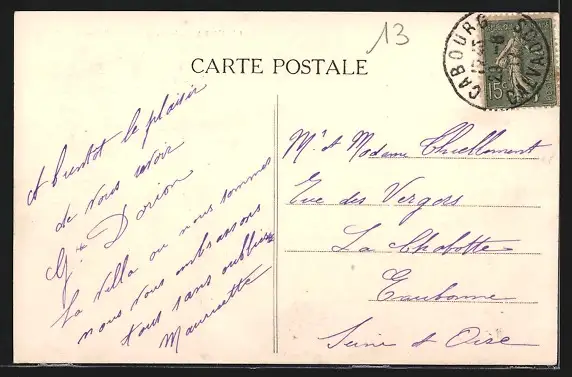 13
CARTE POSTALE
CABOURG
CALVADOS
15c
A bientot le plaisir
de vous revoir
Gt Dorion
La villa ou nous sommes
nous vous embrassons
tous sans oublier
Mauricette
Mr et Madame Thiellement
Rue des Vergers
La Chabotte
Eaubonne
Seine et Oise